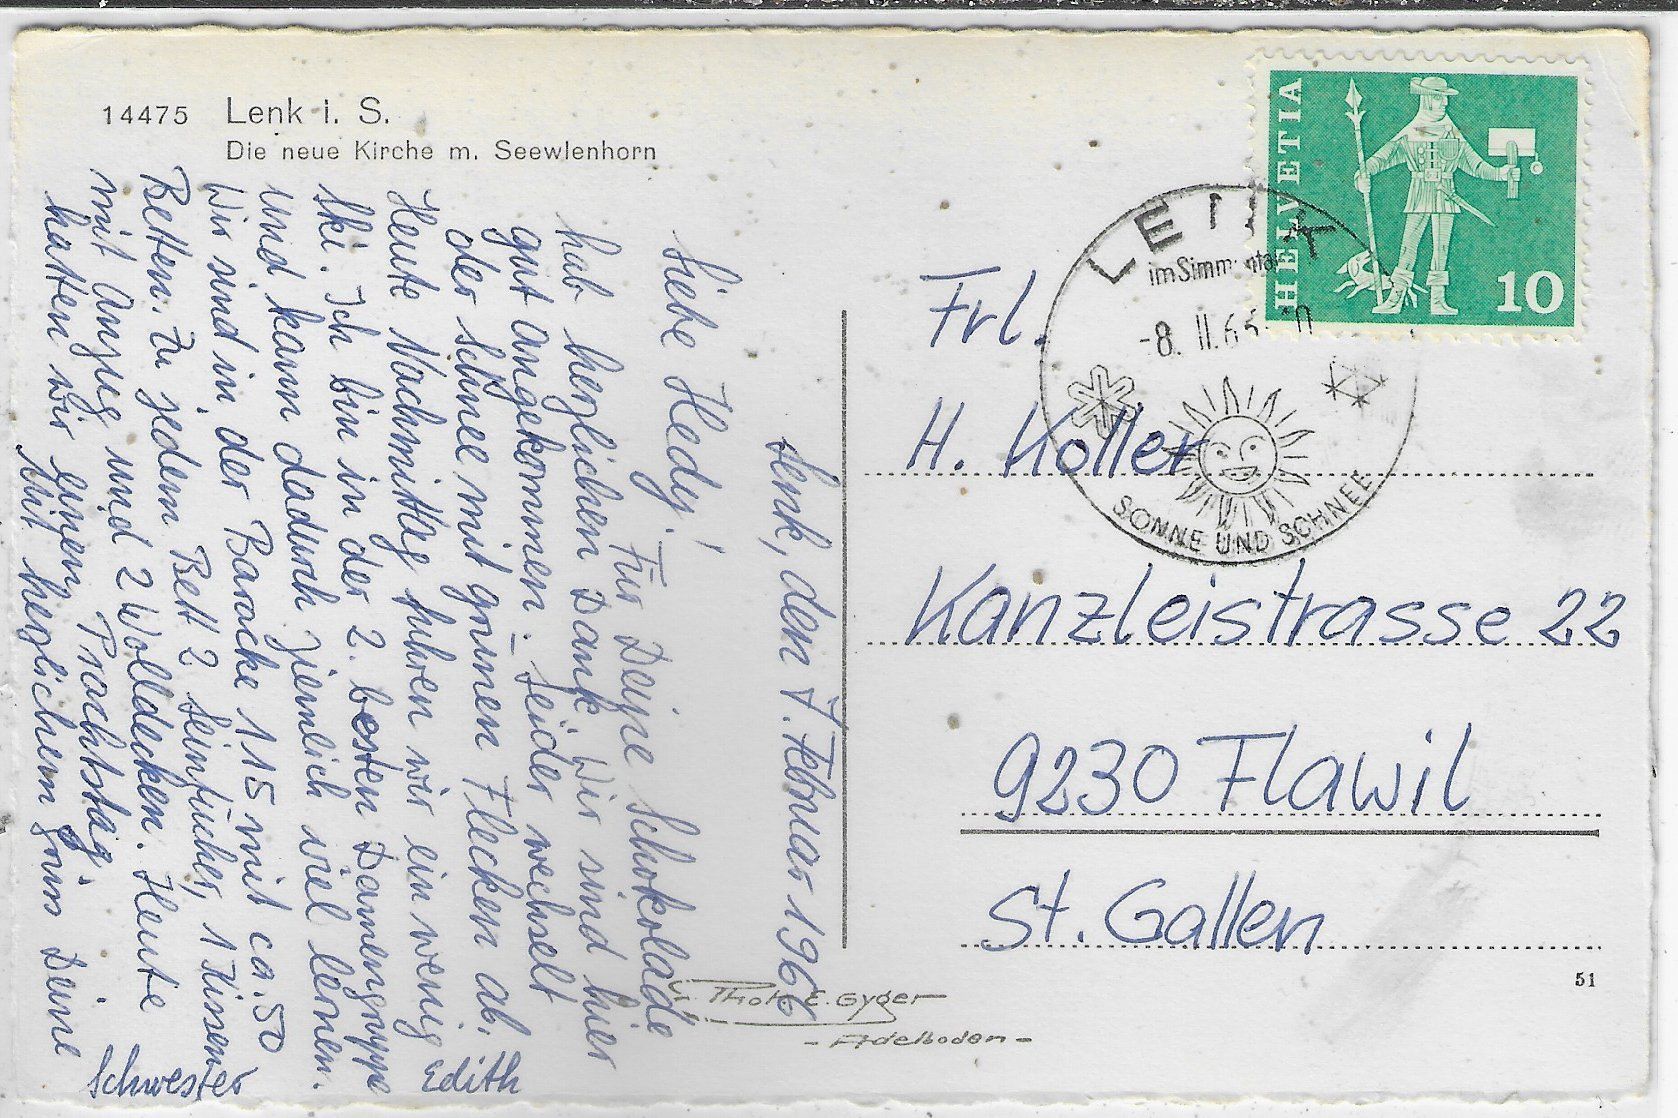 14475 Lenk i. S.
Die neue Kirche m. Seewlenhorn
Lenk, den 7. Februar 1966
Liebe Hedy!
Für Deine Schokolade
hab herzlichen Dank. Wir sind hier
gut angekommen. – Leider wechselt
der Schnee mit grünen Flecken ab.
Heute Nachmittag fuhren wir ein wenig
Ski. Ich bin in der 2. besten Damengruppe
und kann dadurch ziemlich viel lernen.
Wir sind in der Baracke 115 mit ca. 50
Betten. Zu jedem Bett 2 Leintücher, 1 Kissen
mit Anzug und 2 Wolldecken. Heute
hatten wir einen Prachtstag.
Mit herzlichem Gruss Deine
Schwester Edith
HELVETIA
10
LENK
im Simmental
-8. II. 66
SONNE UND SCHNEE
Frl.
H. Koller
Kanzleistrasse 22
9230 Flawil
St. Gallen
51
Phot. E. Gyger
- Adelboden -